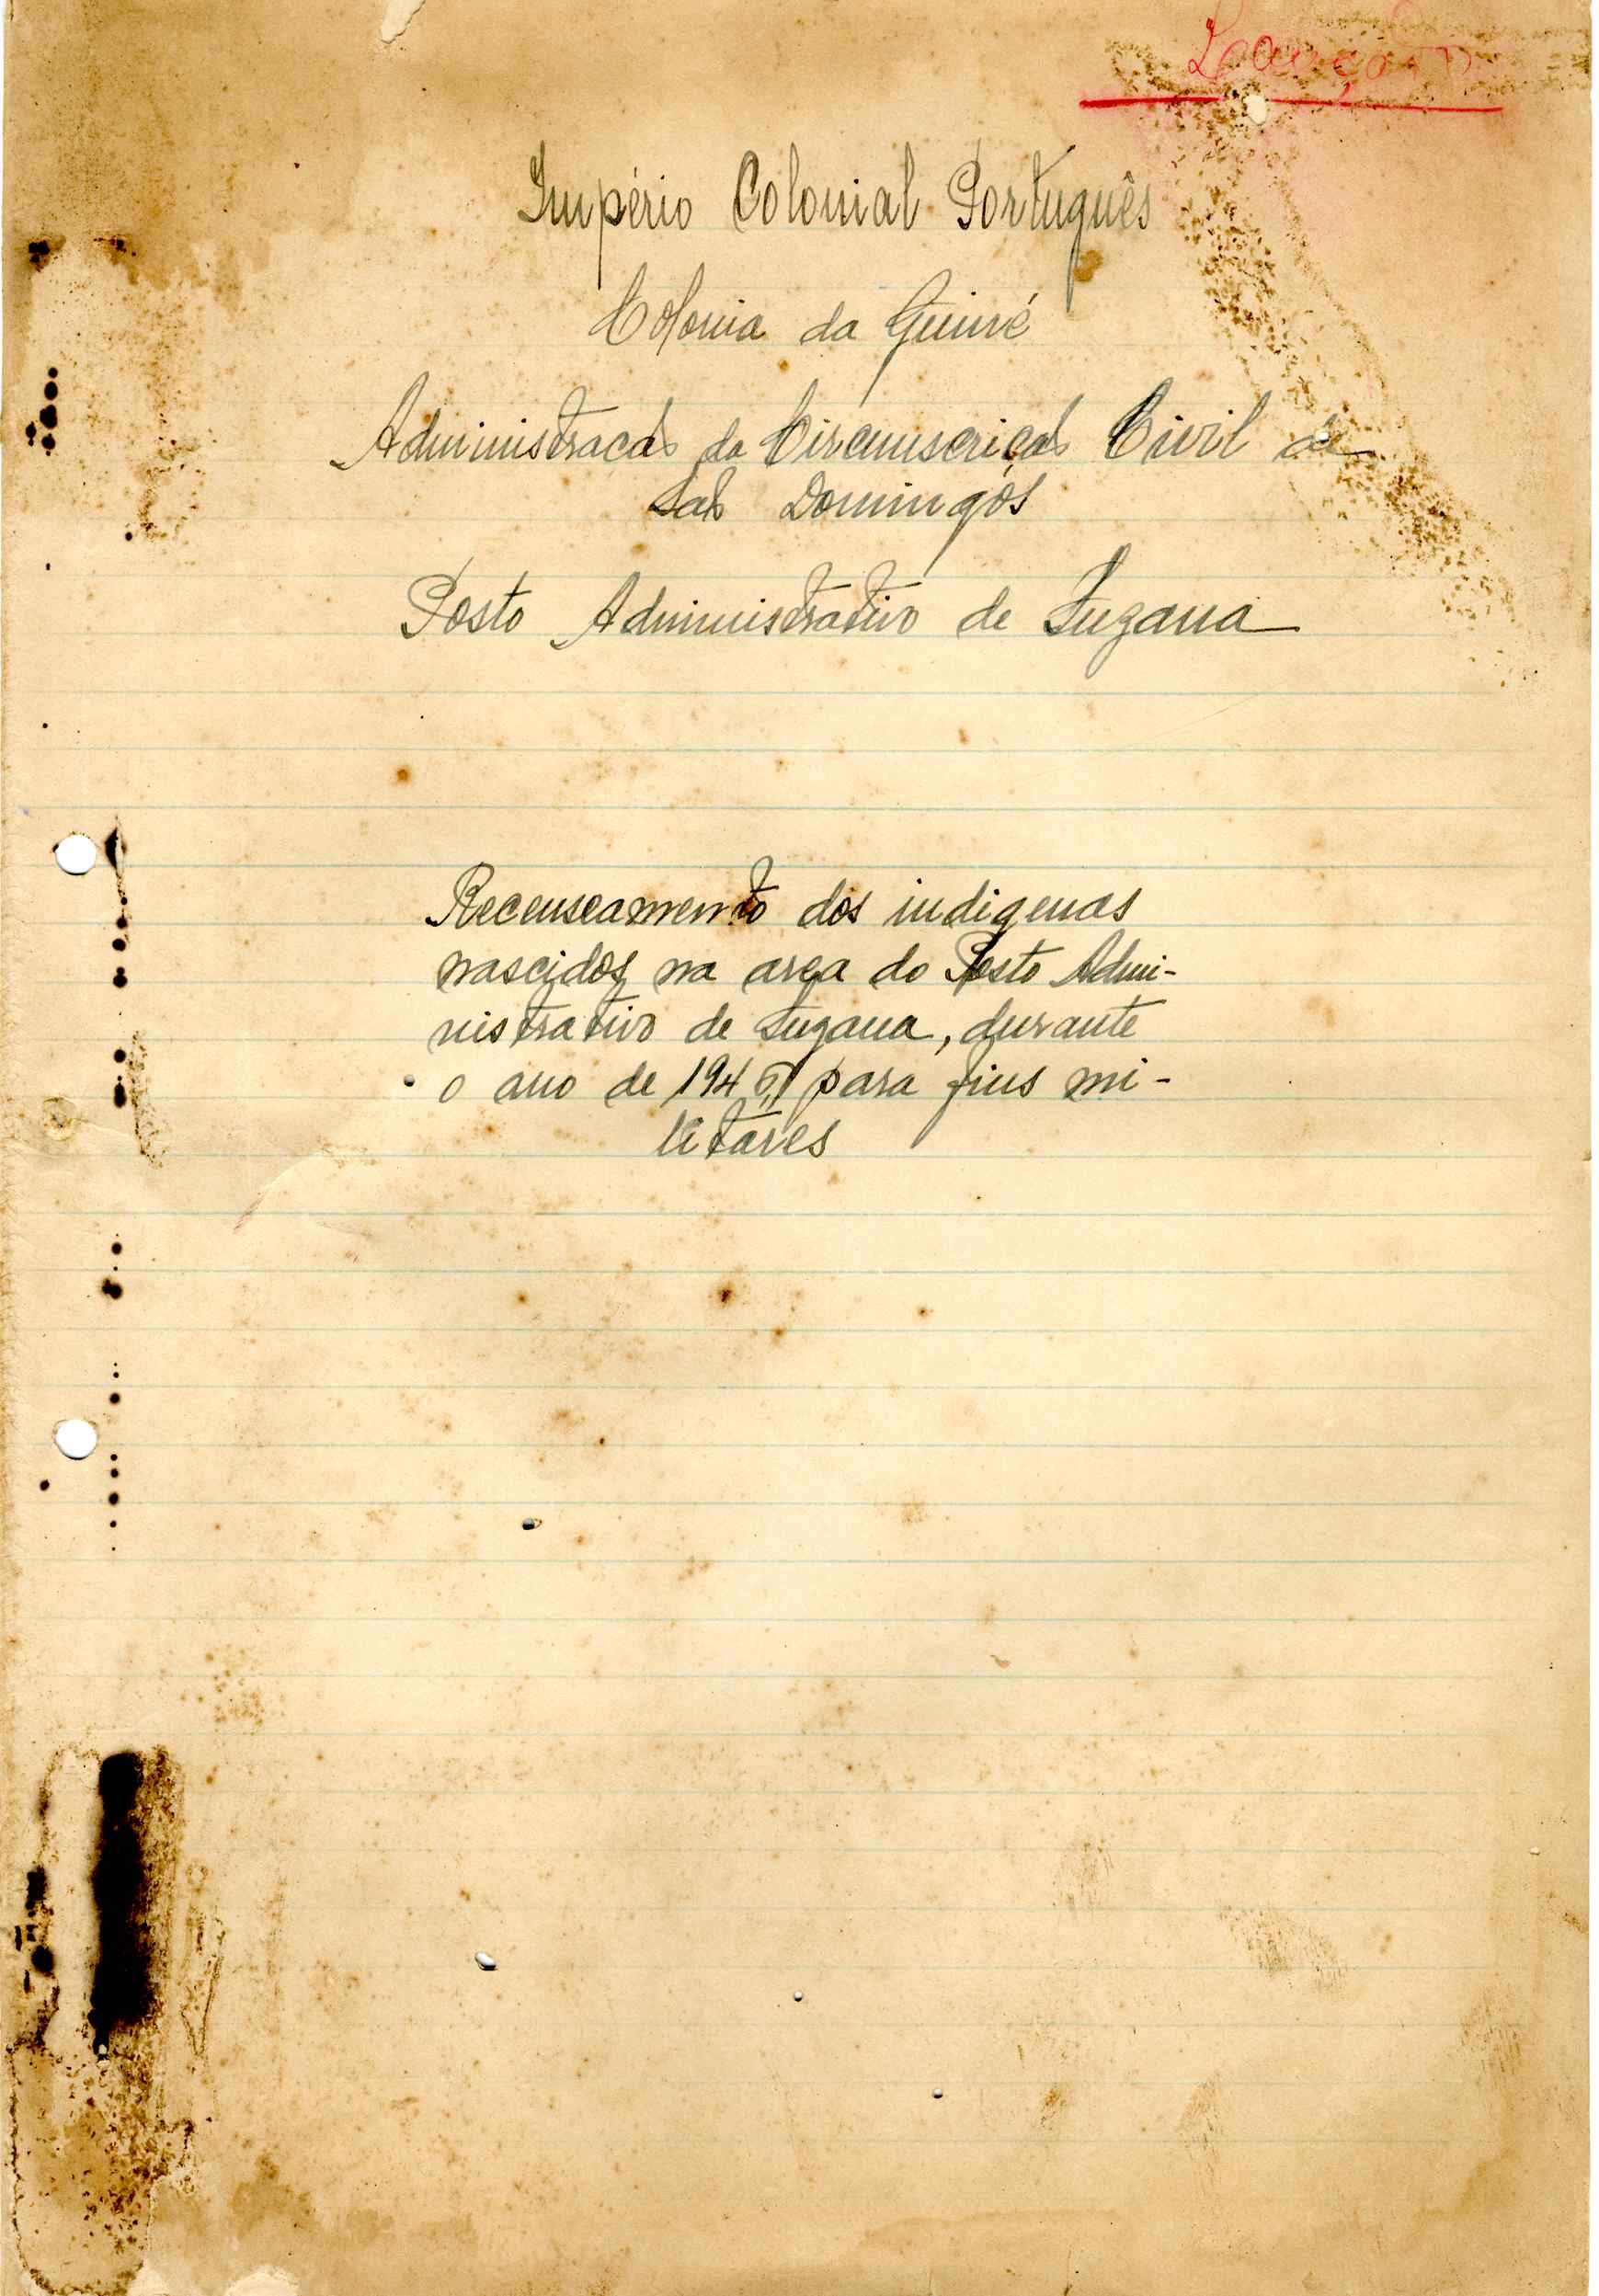 Império Colonial Português
Colonia da Guiné
Administracão da Circunscricão Civil de
São Domingos
Posto Administrativo de Suzana
Recenseamento dos indigenas
nascidos na area do Posto Admi-
nistrativo de Suzana, durante
o ano de para fins mi-
litares